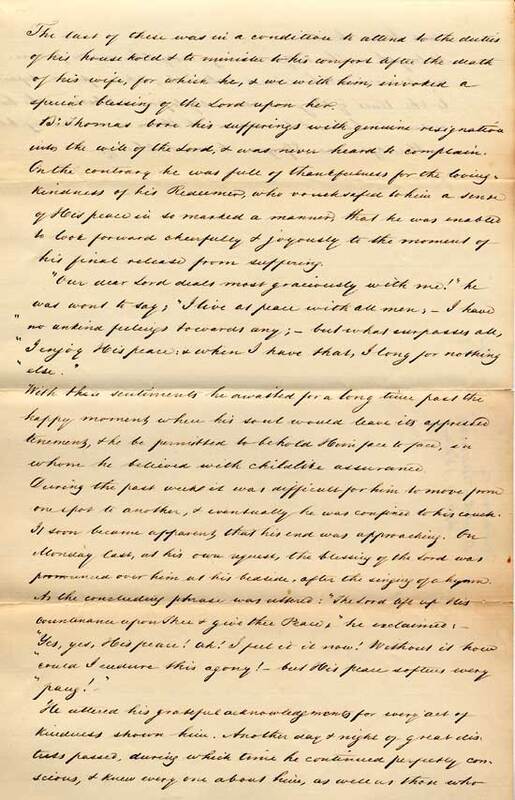 The last of these was in a condition to attend to the duties
of his household & to minister to his comfort after the death
of his wife, for which he, & we with him, invoked a
special blessing of the Lord upon her.
Br. Thomas bore his sufferings with genuine resignation
into the will of the Lord, & was never heard to complain.
On the contrary he was full of thankfulness for the loving-
kindness of his Redeemer, who vouchsafed to him a sense
of His peace in so marked a manner, that he was enabled
to look forward cheerfully & joyously to the moment of
his final release from suffering.
"Our dear Lord deals most graciously with me!" he
was wont to say; "I live at peace with all men; – I have
" no unkind feelings towards any; – but what surpasses all,
" I enjoy His peace: & when I have that, I long for nothing
" else."
With these sentiments he awaited for a long time past the
happy moment, when his soul would leave its oppressed
tenement, & he be permitted to behold Him face to face, in
whom he believed with childlike assurance.
During the past weeks it was difficult for him to move from
one spot to another, & eventually he was confined to his couch.
It soon became apparent that his end was approaching. On
Monday last, at his own request, the blessing of the Lord was
pronounced over him at his bedside, after the singing of a hymn.
As the concluding phrase was uttered: "The Lord lift up His
countenance upon Thee & give thee Peace," he exclaimed: –
"Yes, yes, His peace! ah! I feel it now! Without it how
"could I endure this agony! – but His peace softens every
"pang!"
He uttered his grateful acknowledgments for every act of
kindness shown him. Another day & night of great dis-
tress passed, during which time he continued perfectly con-
scious, & knew every one about him, as well as those who